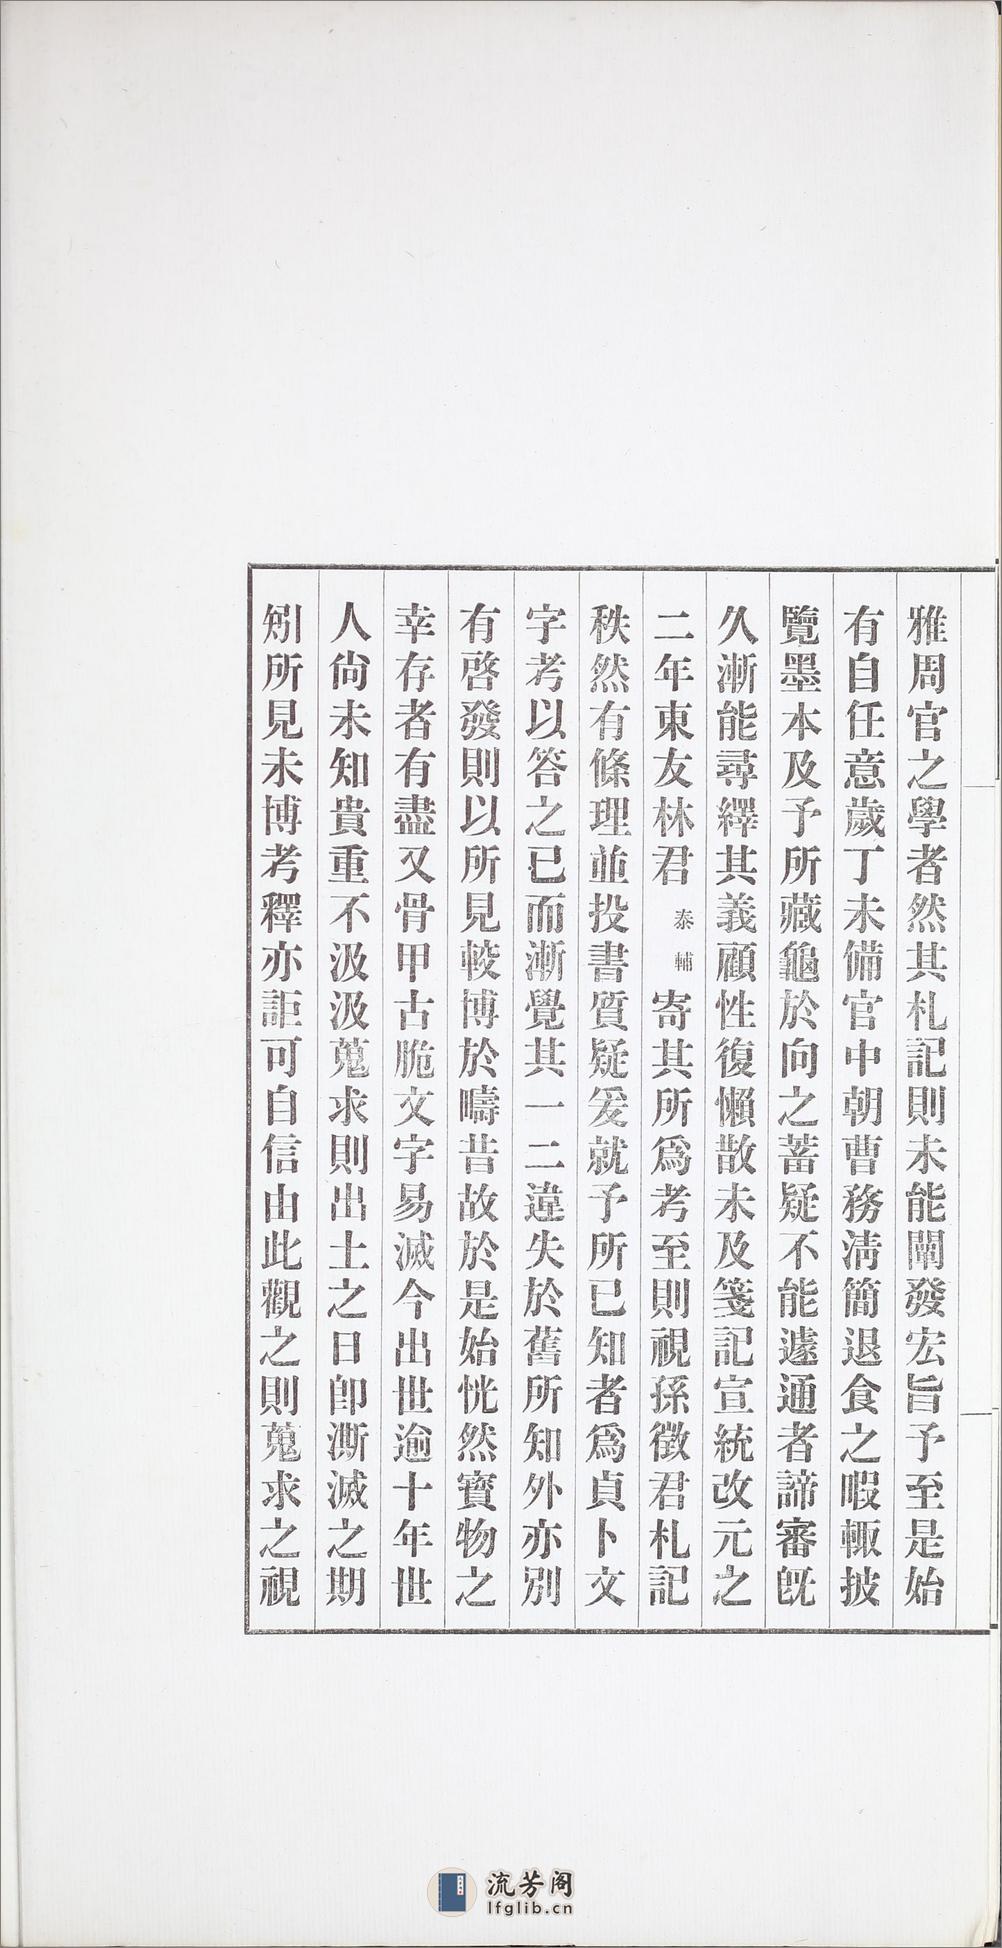 雅周官之學者然其札記則未能闡發宏旨予至是始
有自任意歲丁未備官中朝曹務淸簡退食之暇輒披
覽墨本及予所藏龜於向之蓄疑不能遽通者諦審旣
久漸能尋繹其義顧性復懶散未及箋記宣統改元之
二年東友林君泰輔寄其所爲考至則視孫徵君札記
秩然有條理並投書質疑爰就予所已知者爲貞卜文
字考以答之已而漸覺其一二違失於舊所知外亦別
有啓發則以所見較博於疇昔故於是始恍然寳物之
幸存者有盡又骨甲古脆文字易滅今出世逾十年世
人尙未知貴重不汲汲蒐求則出土之日卽澌滅之期
矧所見未博考釋亦詎可自信由此觀之則蒐求之視
流芳阁
lfglib.cn